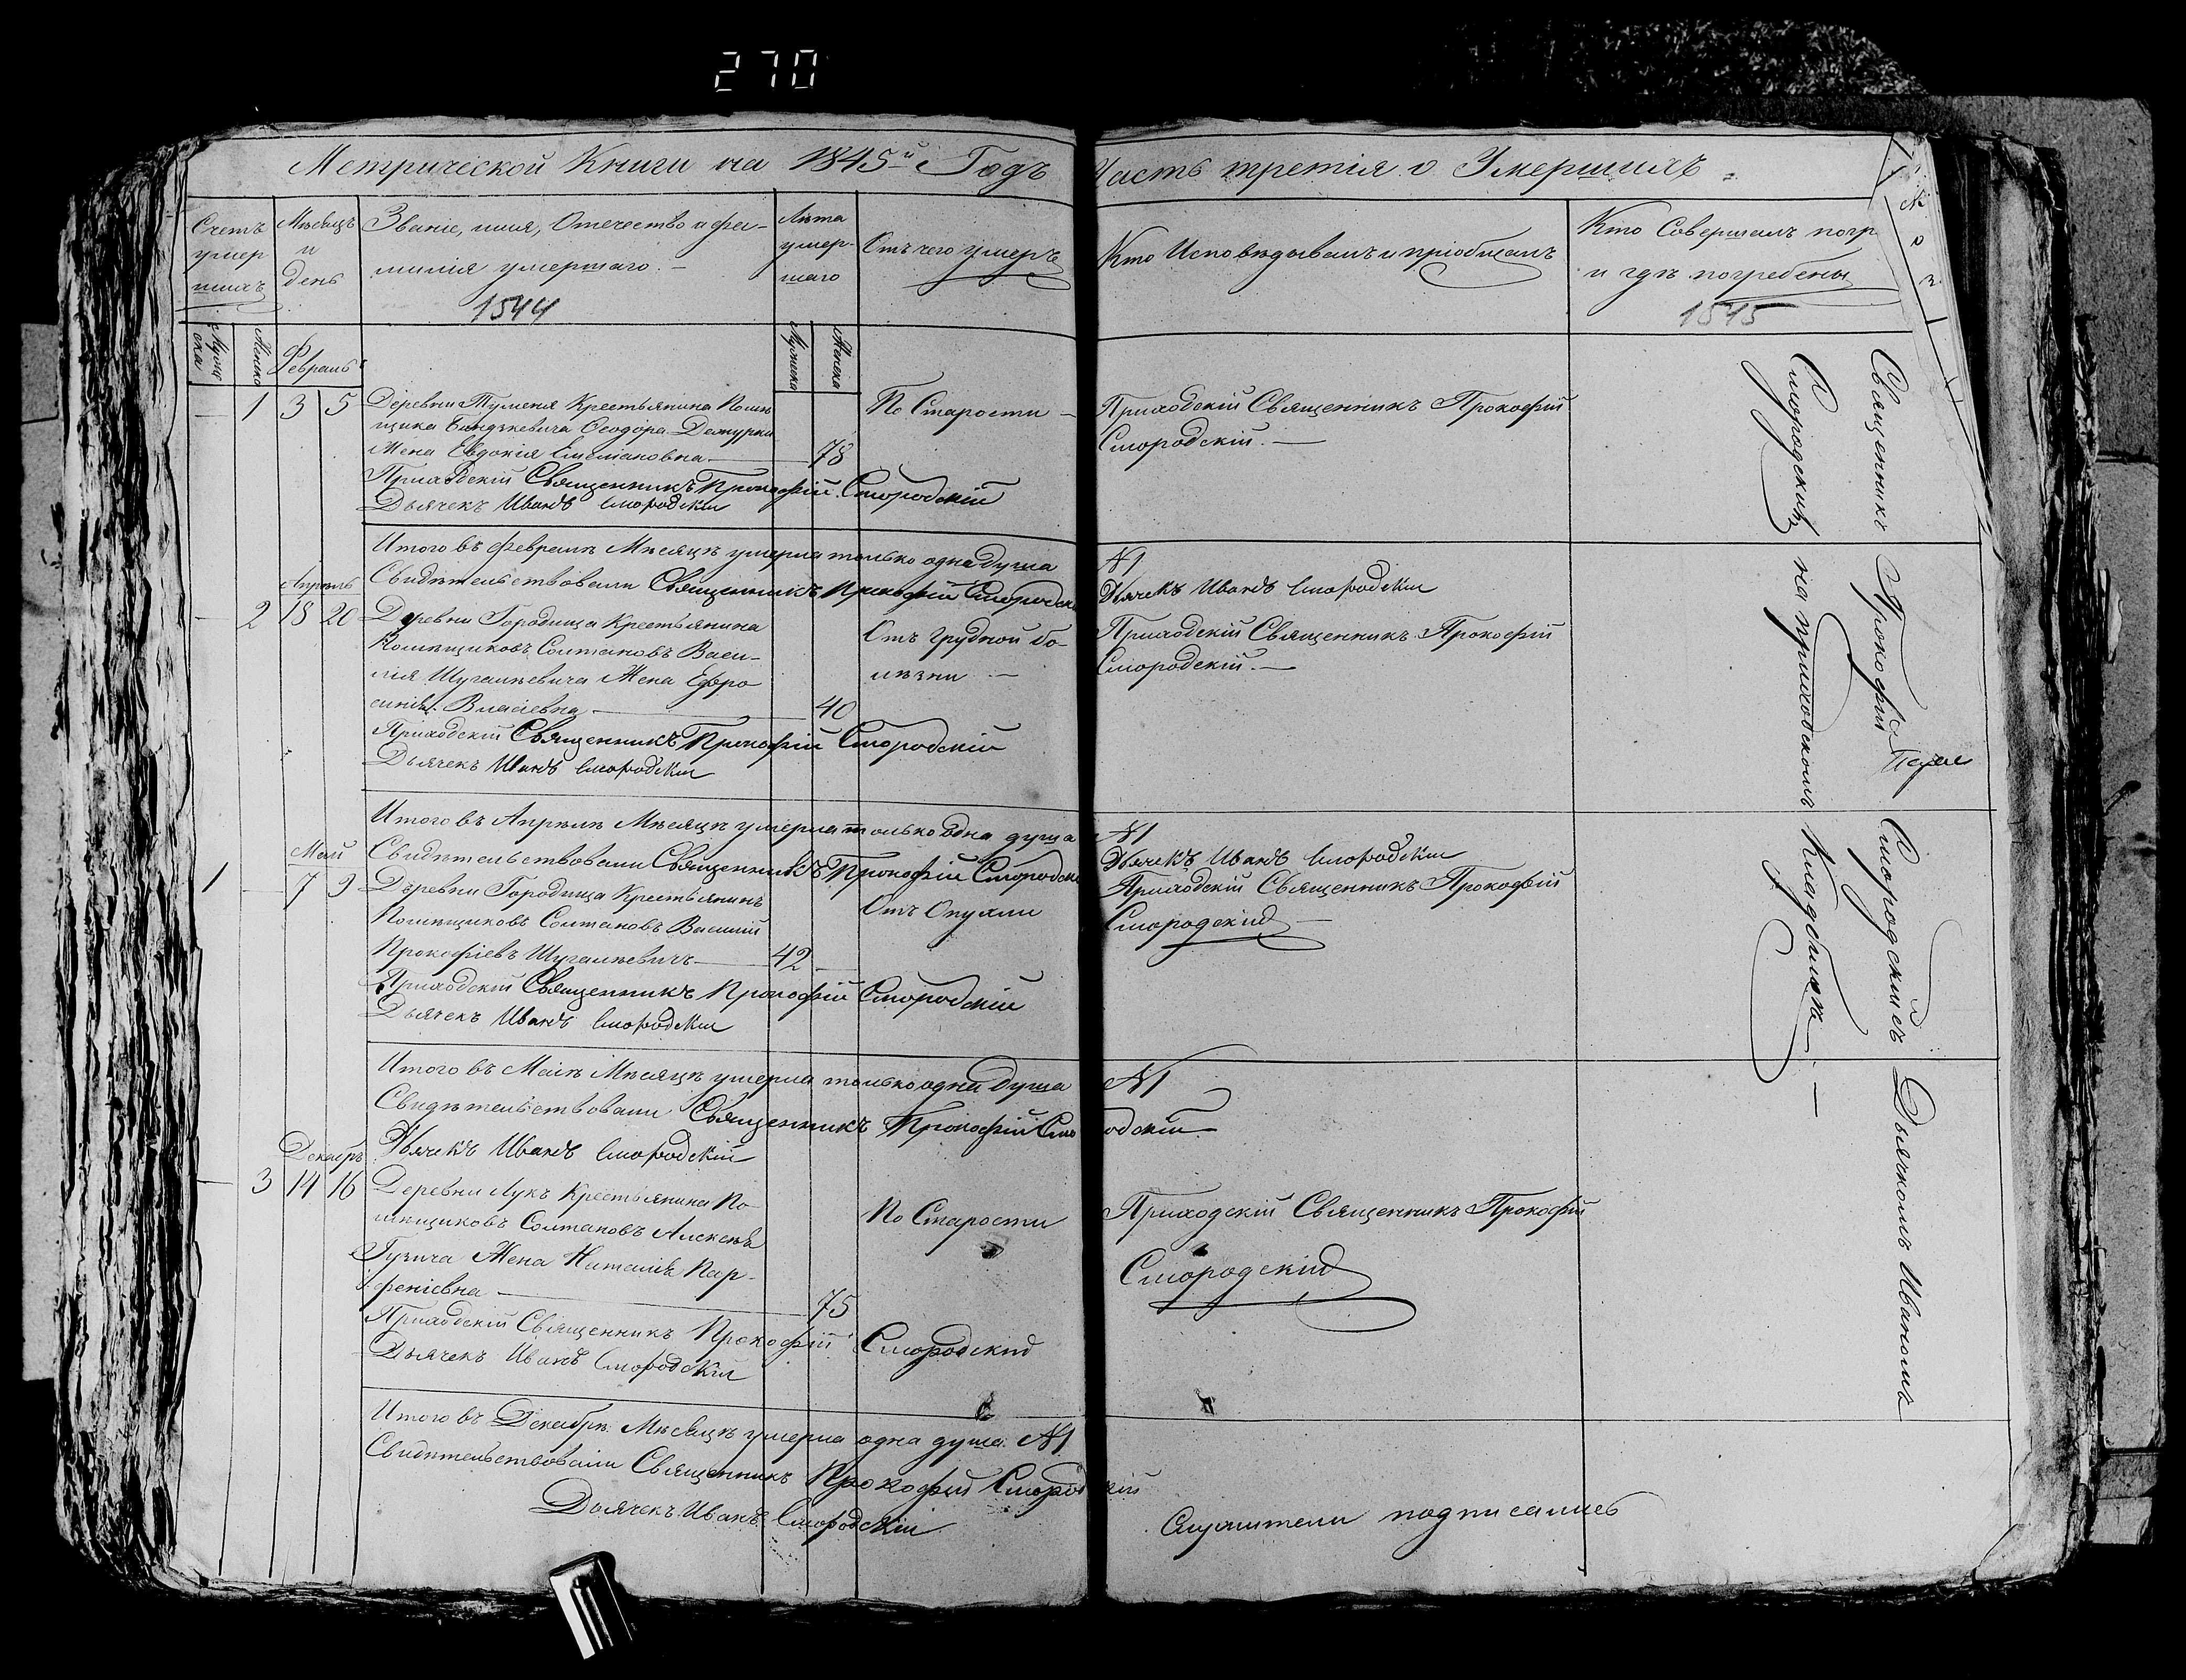 270
Метрической Книги на 1845й Годъ
Счетъ умер шихъ
Мѣсяцъ и День
Званіе, имя, Отечество и фа-
милія умершаго. -
1544
Лѣта умер- шаго
Отъ чего умеръ
Мужска
Женска
Февраль
Мужска
Женска
1 3 5
Деревни Туменя Крестьянина Помѣ
щика Феодора
Жена Евдокія Емеліановна
78
По Старости
Приходскій Священникъ Прокофій Смородскій
Дьячекъ Иванъ Смородскій
Итого въ февралѣ Мѣсяцѣ умерла только одна душа
Свидѣтельствовали Священникъ Прокофій Смородск
Апрѣль
2 18 20
Деревни Городища Крестьянина
Помѣщиковъ Солтановъ Васи-
лія Шугалѣевича Жена Ефро
синія Власіевна
40
Отъ грудной бо-
лѣзни
Приходскій Священникъ Прокофій Смородскій
Дьячекъ Иванъ Смородскій
Итого въ Апрѣлѣ Мѣсяцѣ умерла только одна душа
Свидѣтельствовали Священникъ Прокофій Смородск
Май
1 7 9
Деревни Городища Крестьянинъ
Помѣщиковъ Солтановъ Василий
Прокофіевъ Шугалѣевичъ
42
Отъ Опухли
Приходскій Священникъ Прокофій Смородскій
Дьячекъ Иванъ Смородскій
Итого въ Маіѣ Мѣсяцѣ умерла только одна душа
Свидѣтельствовали Священникъ Прокофій Смо
Дьячекъ Иванъ Смородскій
Декабрь
3 14 16
Деревни Лукъ Крестьянина По
мѣщиковъ Солтановъ Алексѣя
Гузича Жена Наталія Пар-
феніевна
75
По Старости
Приходскій Священникъ Прокофій Смородскій
Дьячекъ Иванъ Смородскій
Итого въ Декабрѣ Мѣсяцѣ умерла одна душа №1
Свидѣтельствовали Священникъ Прокофій Смород
Дьячекъ Иванъ Смородскій
Часть третія о Умершихъ
Кто Исповѣдывалъ и пріобщалъ
Кто Совершалъ погр
и гдѣ погребены
1545
Приходскій Священникъ Прокофій
Смородскій. —
№1
Дьячекъ Иванъ Смородскій
Приходскій Священникъ Прокофій
Смородскій. —
№1
Дьячекъ Иванъ Смородскій
Приходскій Священникъ Прокофій
Смородскій
№1
одскій
Приходскій Священникъ Прокофій
Смородскій
кій
Служители подписались
Священникъ Прокофій Смородскій съ Дьячкомъ Иваномъ
Смородскимъ на приходскомъ Кладбищѣ. —